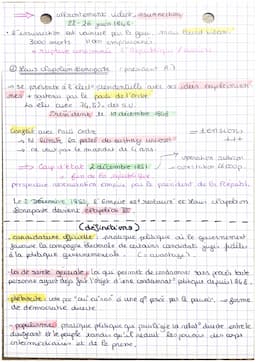 → affrontement ultra, insurrection
22-26 juin 1848.
• L'insurrection est vaincue par la
3000 morts
rupture la République / ouvriers
② Louis Napoléon Bonaparte, président
→ se présente à l'élect° présidentielle avec ses idées
soutenu par le parti de l'Ordre
Le élu avec 74,2% des s.u.
Président le 10 décembre 1848
Conflit avec Parti Ordre
→ tensions
→ limite la portée du suffrage univers
→ ne veut pas le mandat de 4 ans.
→ Coup d'état 2 décembre 1851
→ fin de la république
opération rubicon
Le 2 décembre 1852, l'Empire est restauré et Louis Napoléon
Bonaparte devient Napoléon III
(définitions)
- candidature officielle : pratique politique où le gouvernement
favorise la campagne électorale de certains candidats jugés fidèles
à la politique gouvernementale. (= avantage).
- loi de sûreté générale : loi qui permet de condamner sans procès toute
personne ayant déjà fait l'objet d'une condamnat° politique depuis 1848.
- plébiscite : vote par "oui ou non" à une q° posée par le pouvoir. → forme
de démocratie directe.
- populisme : pratique politique qui privilégie la relat° directe entre le
dirigeant et le peuple tandis qu'il réduit les pouvoirs des corps
intermédiaires et de la presse.